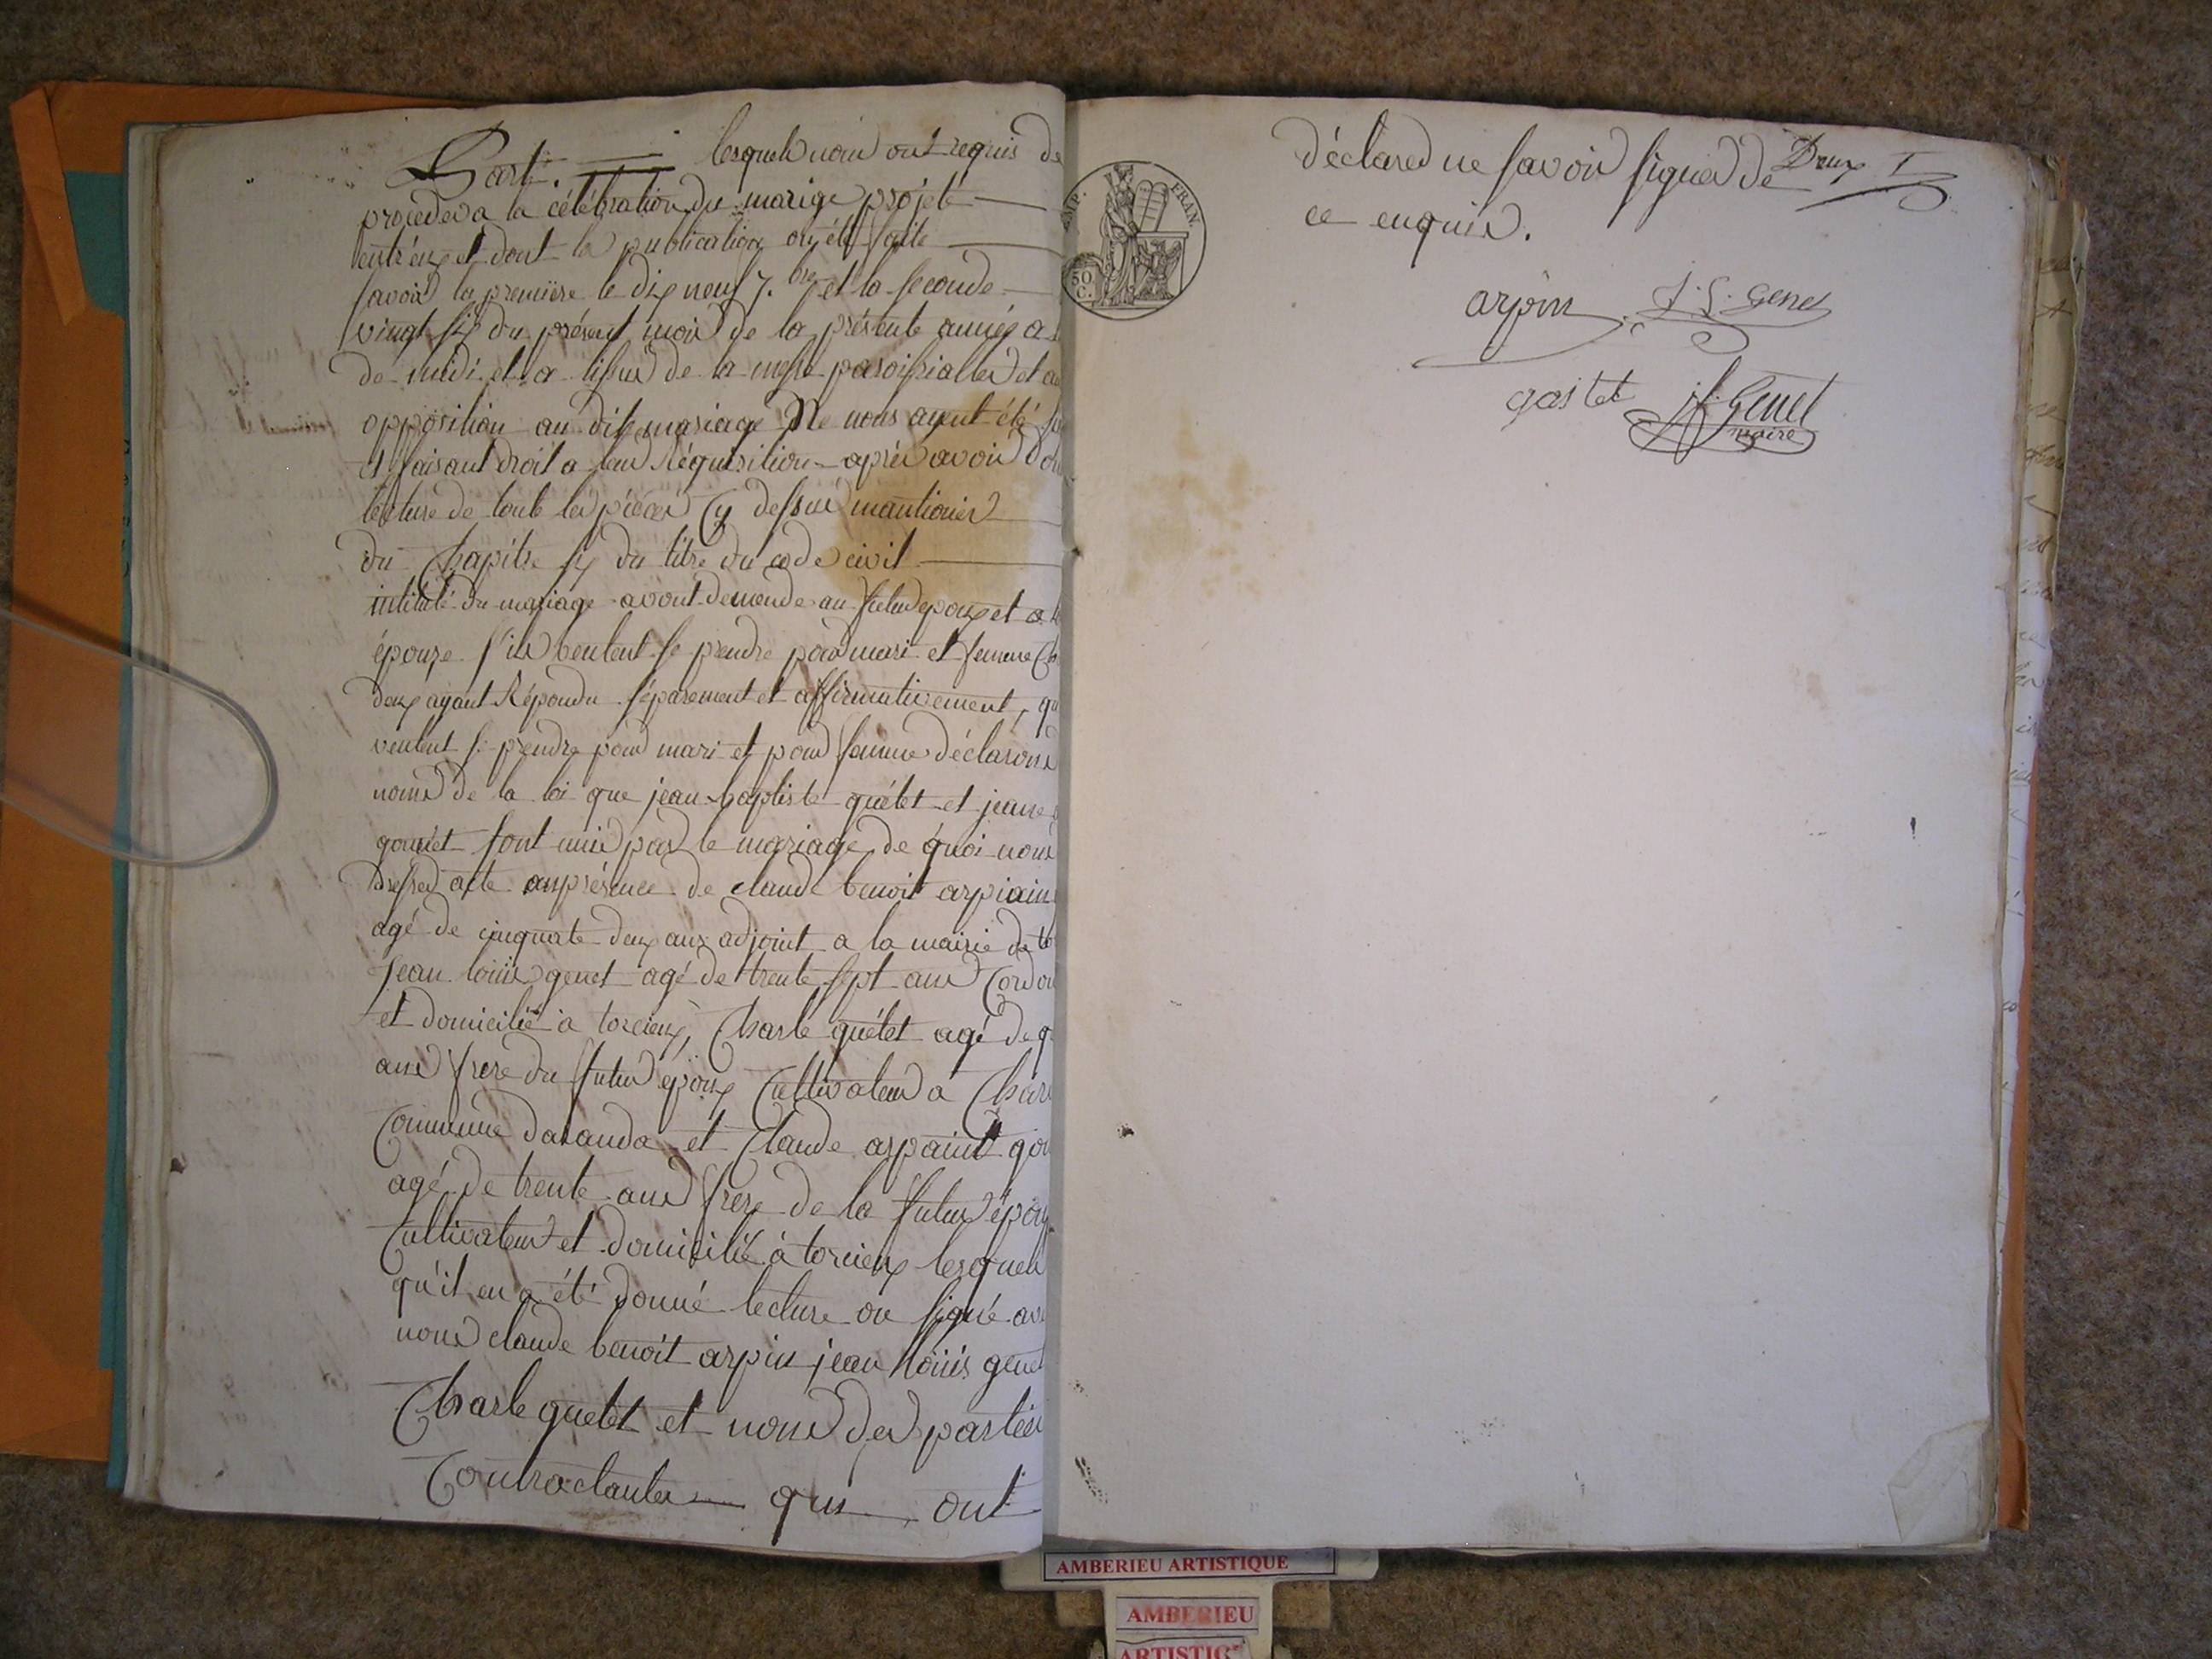 Part. lesquels nous ont requis de
proceder a la célébration du mariage projeté
entr'eux et dont la publication ont été faite
savoir la première le dix neuf 7.bre et la seconde
vingt six du présent mois de la présente année a
de midi et a lissus de la messe paroissialle et au
opposition au dit mariage Ne nous ayent été
et faisant droit a leur Réquisition après avoir
lecture de toute les pièces Cy dessus mantionés
du Chapitre six du titre du code civil
intitulé du mariage avont demende au futur epoux et a
épouze s'ils veulent se prendre pour mari et femme
deux ayant Répondu séparement et affirmativement, qu
veulent se prendre pour mari et pour femme déclarons
noms de la loi que jean baptiste quélet et jeanne
gonnet sont unis par le mariage de quoi nous
dressed acte anprésence de claude benoit arpiain
agé de cinquate deux ans adjoint a la mairie de to
Jean louis genet agé de trente sept ans Cordon
et domicilié à torcieux, Charle quélet agé de q
ans frere du futur époux Cultivateur a Char
Commune daranda et Claude arpaint gon
agé de trente ans frere de la futur épou
Cultivateur et domicilié à torcieux lesquels
qu'il en a été donné lecture on signé ave
nous claude benoit arpin jean louis genet
Charle quelet et nous des parties
Contractantes qui ont
déclared ne savoir signer de
ce enquis.
Deux
IMP. FRAN.
50 C.
arpin J. L. Genet
gastet jf. Genet
maire
AMBERIEU ARTISTIQUE
AMBERIEU
ARTISTIQ